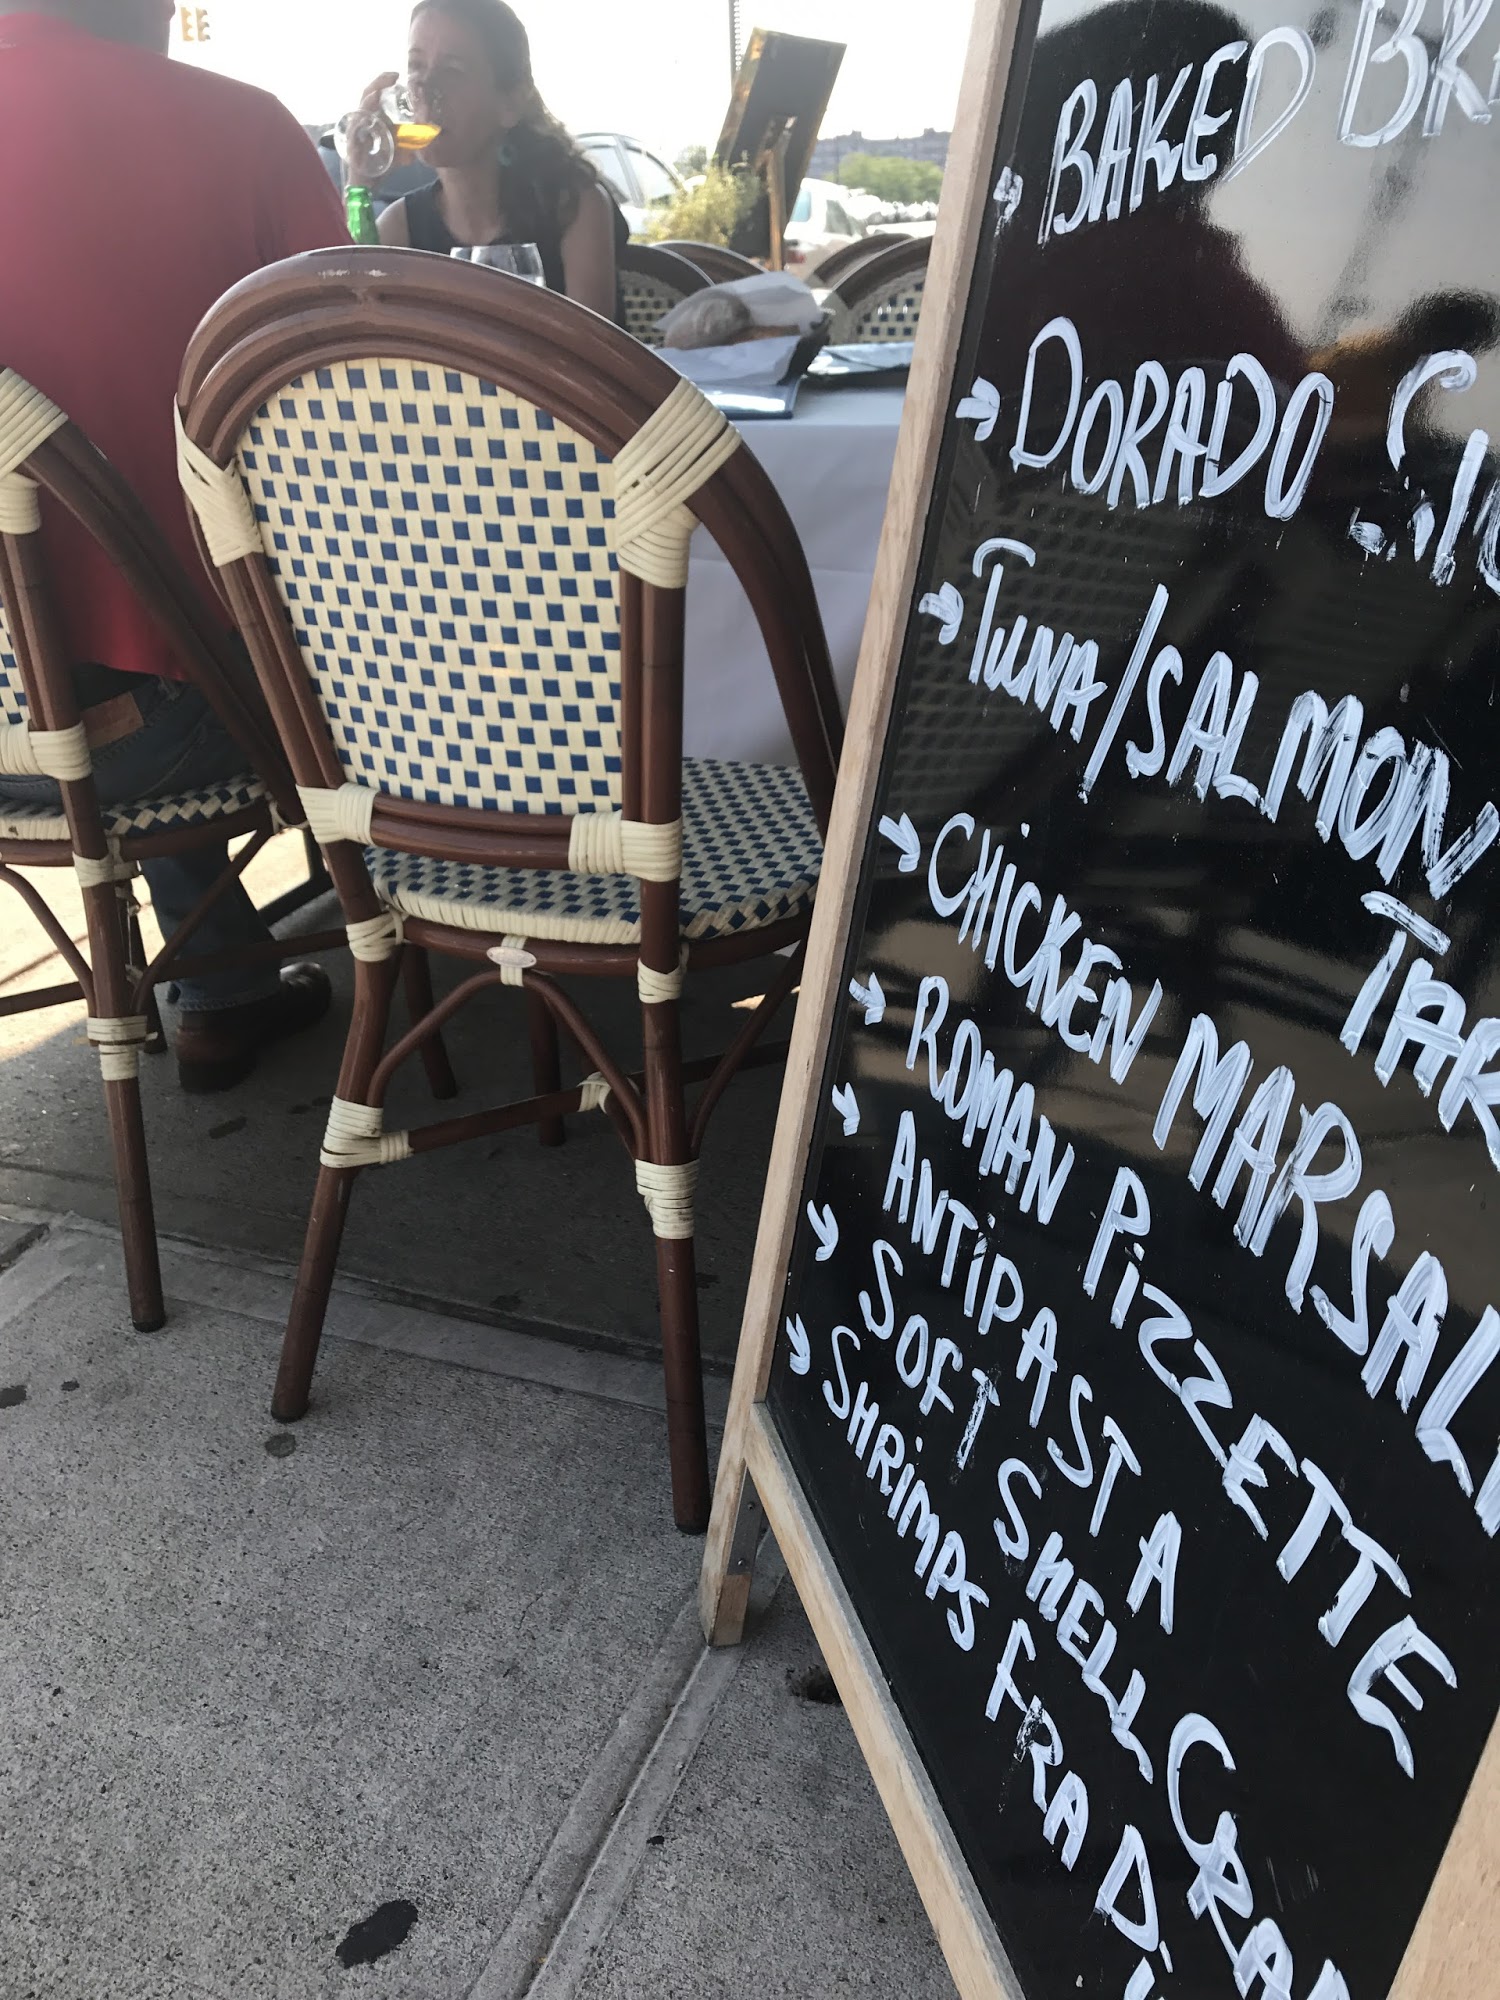 BAKED BR
DORADO
TUNA/SALMON
TAR
CHICKEN MARSAL
ROMAN PiZZETTE
ANTiPASTA
SOFT SHELL CRA
SHRiMPS FRA D